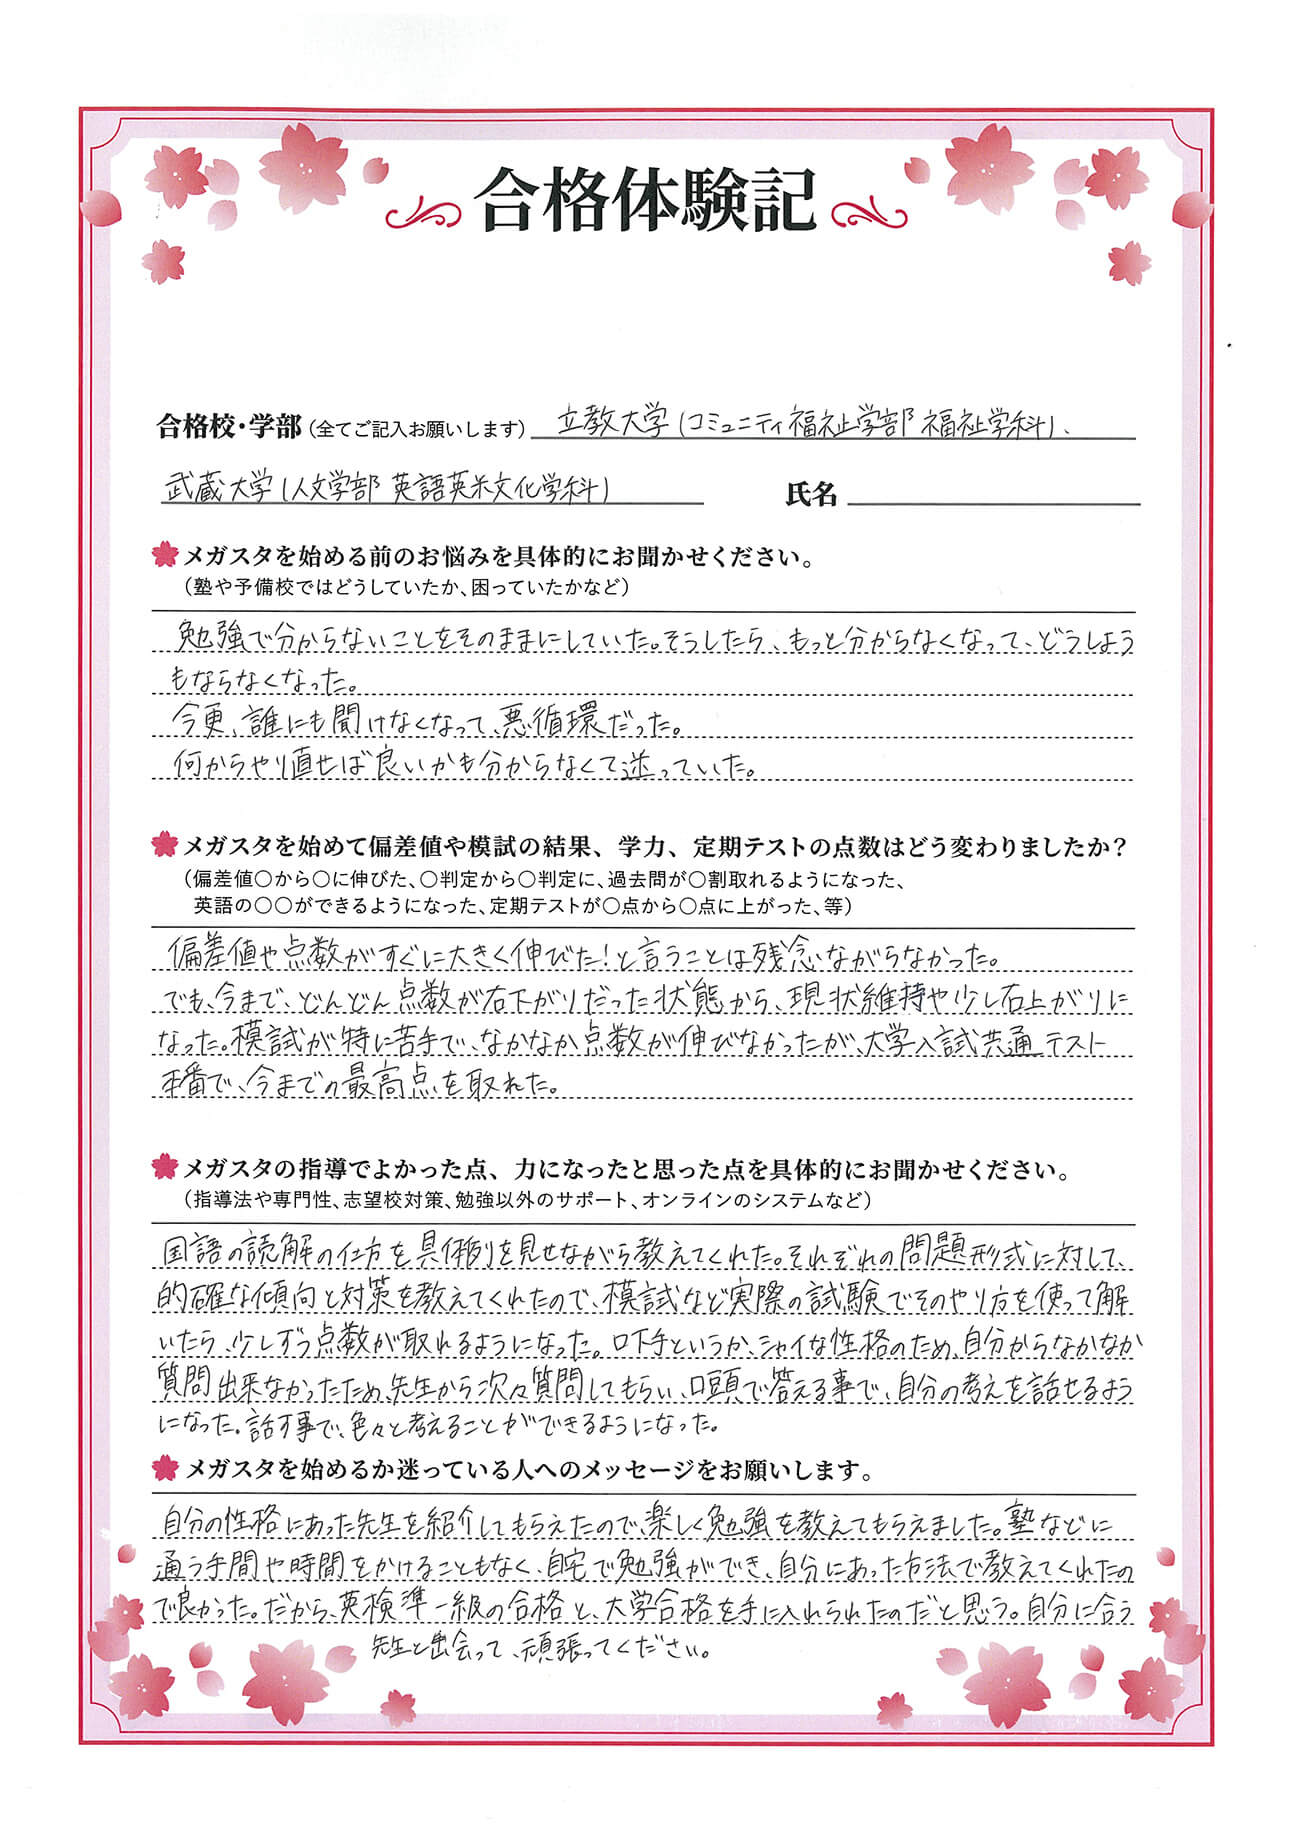 合格体験記
合格校・学部（全てご記入お願いします） 立教大学(コミュニティ福祉学部 福祉学科)、
武蔵大学(人文学部 英語英米文化学科) 氏名
メガスタを始める前のお悩みを具体的にお聞かせください。
（塾や予備校ではどうしていたか、困っていたかなど）
勉強で分からないことをそのままにしていた。そうしたら、もっと分からなくなって、どうしよう
もならなくなった。
今更、誰にも聞けなくなって、悪循環だった。
何からやり直せば良いかも分からなくて迷っていた。
メガスタを始めて偏差値や模試の結果、学力、定期テストの点数はどう変わりましたか？
（偏差値〇から〇に伸びた、〇判定から〇判定に、過去問が〇割取れるようになった、
英語の〇〇ができるようになった、定期テストが〇点から〇点に上がった、等）
偏差値や点数がすぐに大きく伸びた！と言うことは残念ながらなかった。
でも、今まで、どんどん点数が右下がりだった状態から、現状維持や少し右上がりに
なった。模試が特に苦手で、なかなか点数が伸びなかったが、大学入試共通テスト
本番で、今までの最高点を取れた。
メガスタの指導でよかった点、力になったと思った点を具体的にお聞かせください。
（指導法や専門性、志望校対策、勉強以外のサポート、オンラインのシステムなど）
国語の読解の仕方を具体例を見せながら教えてくれた。それぞれの問題形式に対して、
的確な傾向と対策を教えてくれたので、模試など実際の試験でそのやり方を使って解
いたら、少しずつ点数が取れるようになった。口下手というか、シャイな性格のため、自分からなかなか
質問出来なかったため、先生から次々質問してもらい、口頭で答える事で、自分の考えを話せるよう
になった。話す事で、色々と考えることができるようになった。
メガスタを始めるか迷っている人へのメッセージをお願いします。
自分の性格にあった先生を紹介してもらえたので、楽しく勉強を教えてもらえました。塾などに
通う手間や時間をかけることもなく、自宅で勉強ができ、自分にあった方法で教えてくれたの
で良かった。だから、英検準一級の合格と、大学合格を手に入れられたのだと思う。自分に合う
先生と出会って、頑張ってください。